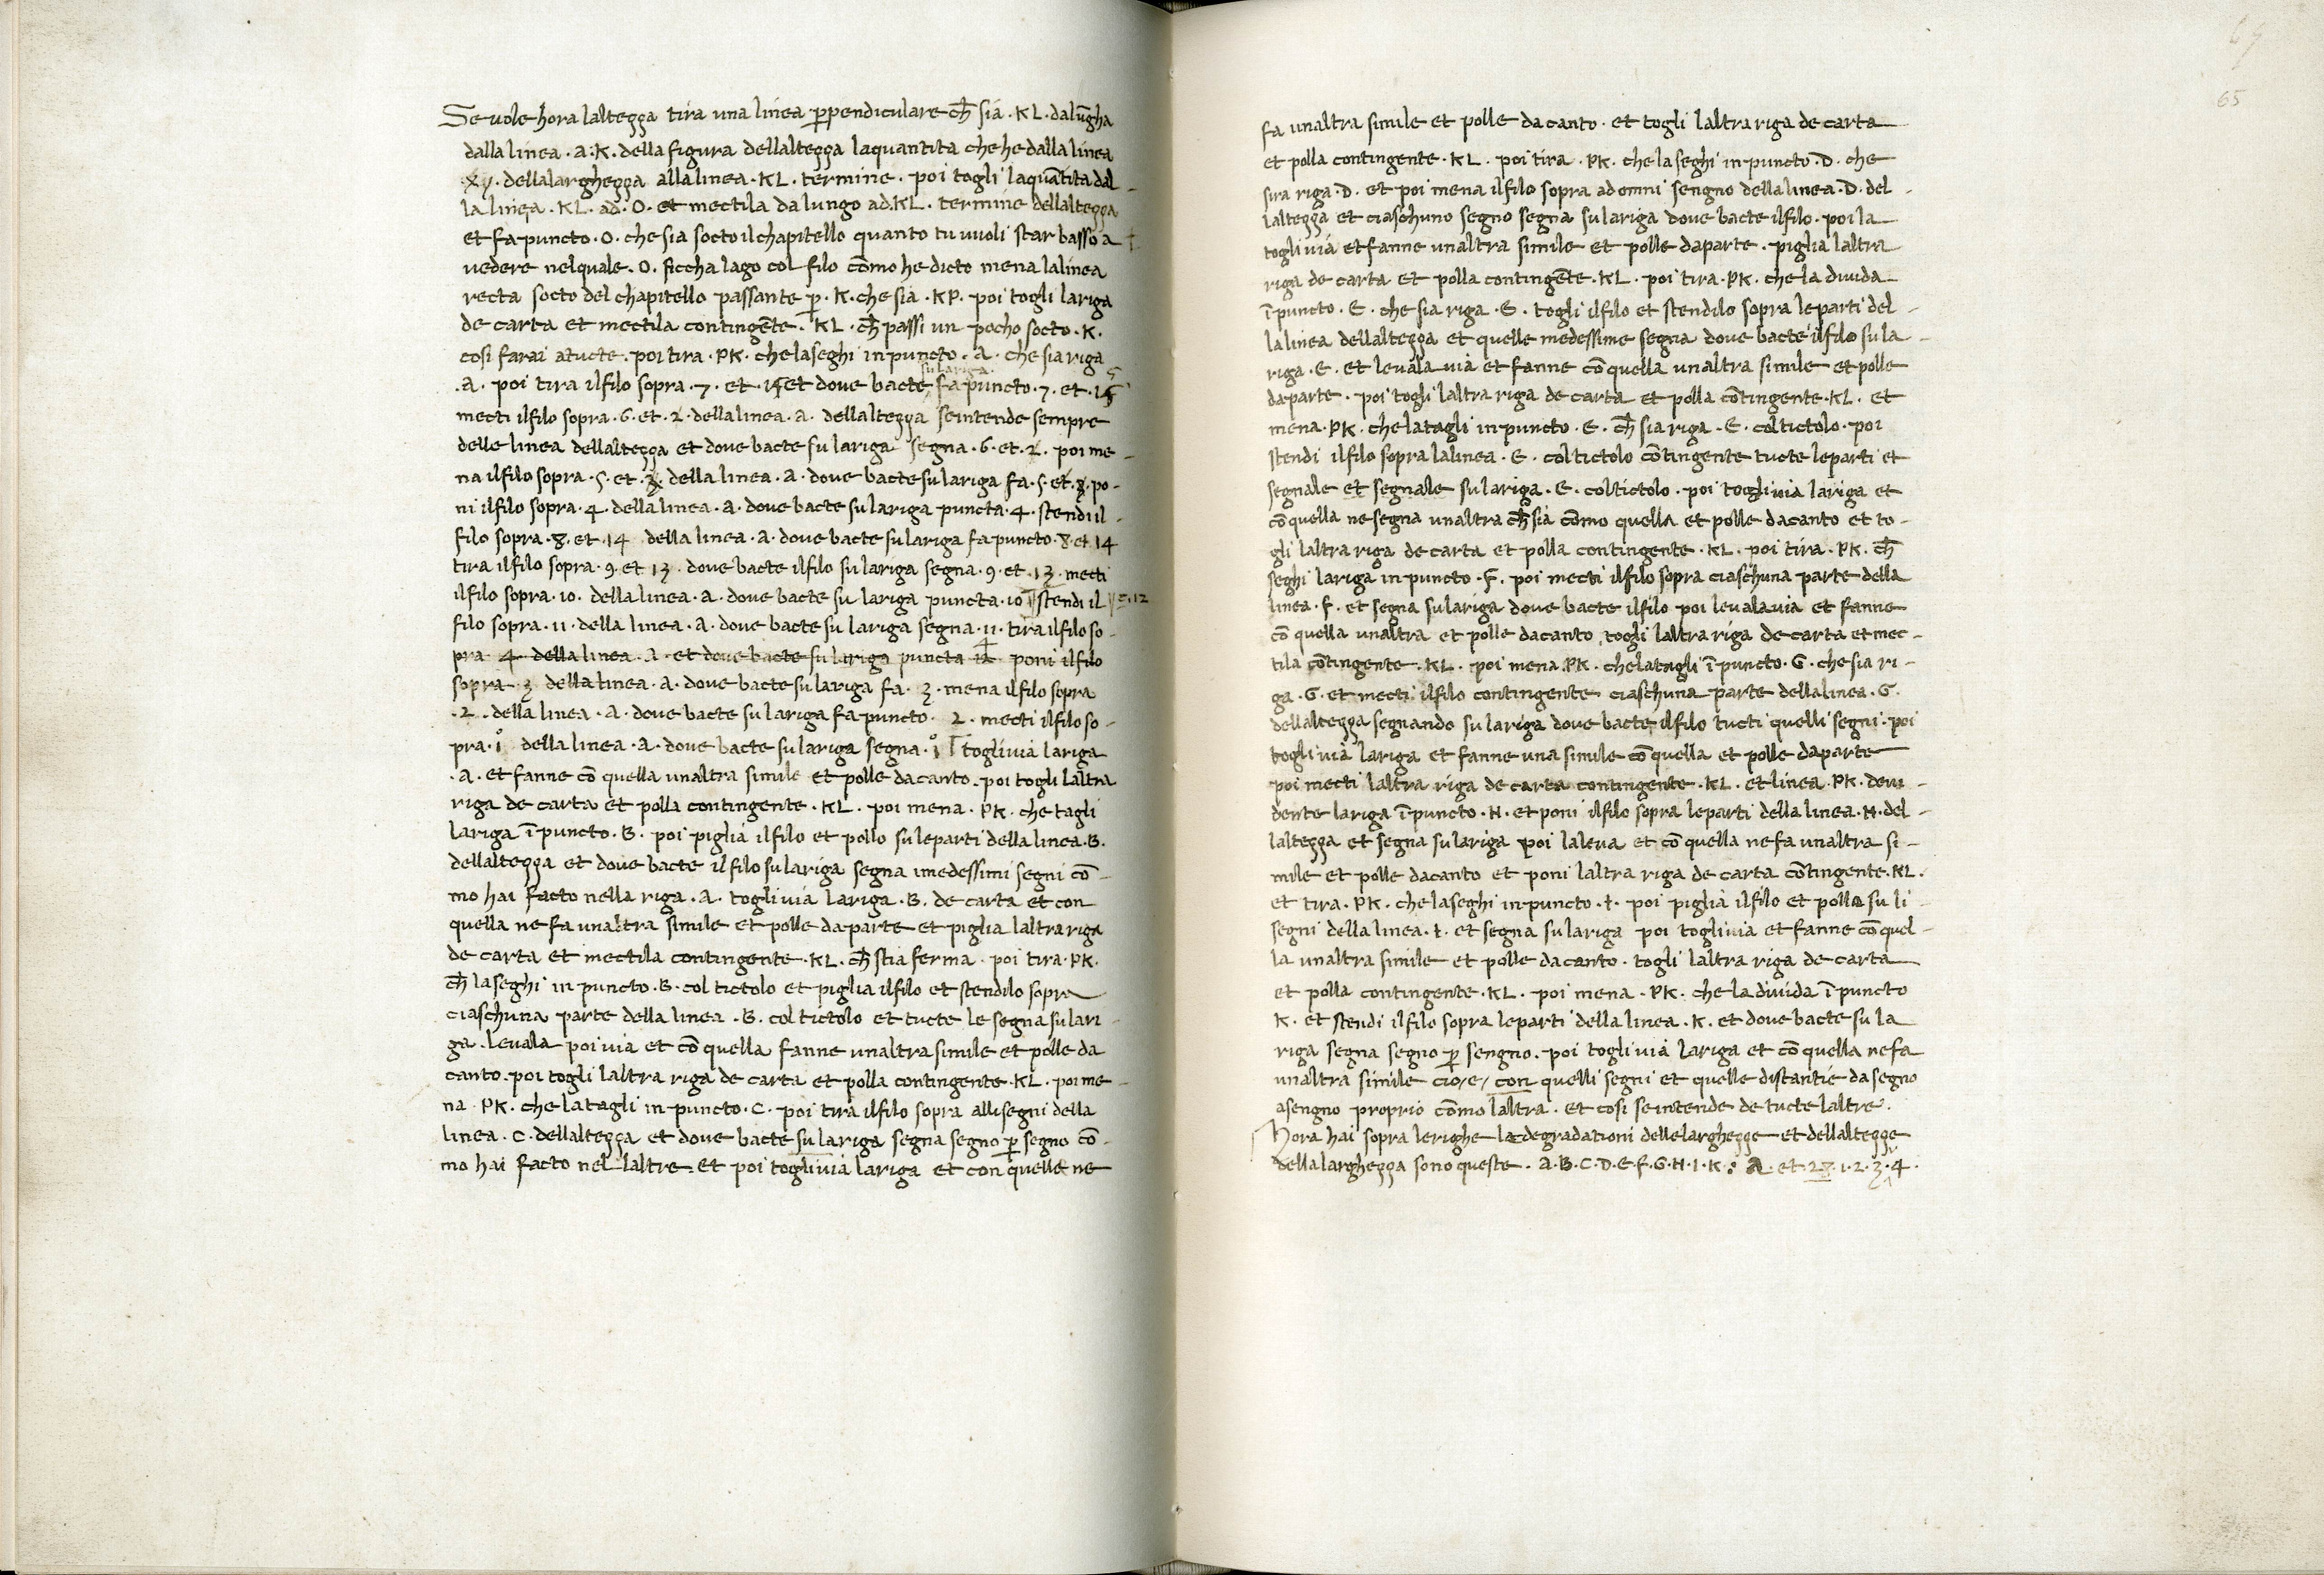 Se vole hora laltezza tira una linea ꝑpendiculare ch̄ sia · KL · dalūgha
dalla linea · A:K · della figura dellaltezza laquantita che he dalla linea
xy · dellalarghezza alla linea · KL · termine · poi togli laquātita dal-
la linea · KL · ad · O · et mectila da lungo ad.KL · termine dellaltezza
et fa puncto · O · che sia socto il chapitello quanto tu vuoli star basso a
vedere nel quale · O · ficcha lago col filo cōmo he dicto mena la linea
recta socto del chapitello passante ꝑ · K · che sia · KP · poi togli la riga
de carta et mectila contingēte · KL · ch̄ passi un pocho socto · K ·
cosi farai a tucte · poi tira · PK · che la seghi in puncto · A · che sia riga
su la riga
· A · poi tira il filo sopra · 7 · et · 15 et dove bacte fa puncto · 7 · et · 15
mecti il filo sopra · 6 · et · 2 · della linea · A · dellaltezza se intende sempre
delle linea dellaltezza et dove bacte su la riga segna · 6 · et · 2 · poi me-
na il filo sopra · 5 · et · 3 · della linea · A · dove bacte su la riga fa · 5 · et · 3 · po-
ni il filo sopra · 4 · della linea · A · dove bacte su la riga puncta · 4 · stendi il-
filo sopra · 8 · et · 14 della linea · A · dove bacte su la riga fa puncto · 8 · et 14
tira il filo sopra · 9 · et 13 · dove bacte il filo su la riga segna · 9 · et · 13 · mecti
il filo sopra · 10 · della linea · A · dove bacte su la riga puncta · 10 stendi il et · 12
filo sopra · 11 · della linea · A · dove bacte su la riga segna · 11 · tira il filo so-
pra 4 della linea · A · et dove bacte su la riga puncta 12 poni il filo
sopra · 3 della linea · A · dove bacte su la riga fa · 3 · mena il filo sopra
· 2 · della linea · A · dove bacte su la riga fa puncto · 2 · mecti il filo so-
pra · i° della linea · A · dove bacte su la riga segna · i° togli via la riga
· A · et fanne cō quella unaltra simile et polle da canto · poi togli laltra
riga de carta et polla contingente · KL · poi mena · PK · che tagli
la riga ī puncto · B · poi piglia il filo et pollo su le parti della linea · B ·
dellaltezza et dove bacte il filo su la riga segna i medessimi segni cō-
mo hai facto nella riga · A · togli via la riga · B · de carta et con
quella ne fa unaltra simile et polle da parte et piglia laltra riga
de carta et mectila contingente · KL · ch̄ stia ferma · poi tira · PK ·
ch̄ la seghi in puncto · B · col tictolo et piglia il filo et stendilo sopra
ciaschuna parte della linea · B · col tictolo et tucte le segna su la ri-
ga · levala poi via et cō quella fanne unaltra simile et polle da
canto · poi togli laltra riga de carta et polla contingente · KL · poi me-
na · PK · che la tagli in puncto · C · poi tira il filo sopra alli segni della
linea · C · dellaltezza et dove bacte su la riga segna segno ꝑ segno cō-
mo hai facto nel laltre · et poi togli via la riga et con quelle ne
65
fa unaltra simile et polle da canto · et togli laltra riga de carta
et polla contingente · KL · poi tira · PK · che la seghi in puncto · D · che
sira riga · D · et poi mena il filo sopra ad omni sengno della linea · D · del-
laltezza et ciaschuno segno segna su la riga dove bacte il filo · poi la
togli via et fanne unaltra simile et polle da parte · piglia laltra
riga de carta et polla contingēte · KL · poi tira · PK · che la divida
ī puncto · E · che sia riga · E · togli il filo et stendilo sopra le parti del-
la linea dellaltezza et quelle medessime segna dove bacte il filo su la-
riga · E · et levala via et fanne cō quella unaltra simile et polle
da parte · poi togli laltra riga de carta et polla cōtingente · KL · et
mena · PK · che la tagli in puncto · E · ch̄ sia riga · E · col tictolo · poi
stendi il filo sopra la linea · E · col tictolo cōtingente tucte le parti et
segnale et segnale su la riga · E · col tictolo · poi togli via la riga et
cō quella ne segna unaltra ch̄ sia cōmo quella et polle da canto et to-
gli laltra riga de carta et polla contingente · KL · poi tira · PK · ch̄
seghi la riga in puncto · F · poi mecti il filo sopra ciaschuna parte della
linea · F · et segna su la riga dove bacte il filo poi levala via et fanne
cō quella unaltra et polle da canto togli laltra riga de carta et mec-
tila cōtingente · KL · poi mena · PK · che la tagli ī puncto · G · che sia ri-
ga · G · et mecti il filo contingente ciaschuna parte della linea · G ·
dellaltezza segnando su la riga dove bacte il filo tucti quelli segni · poi
togli via la riga et fanne una simile cō quella et polle da parte
poi mecti laltra riga de carta contingente · KL · et linea · PK · devi-
dente la riga ī puncto · H · et poni il filo sopra le parti della linea · H · del-
laltezza et segna su la riga poi la leva et cō quella ne fa unaltra si-
mile et polle da canto et poni laltra riga de carta cōtingente · KL ·
et tira · PK · che la seghi in puncto · I · poi piglia il filo et pollo su li
segni della linea · I · et segna su la riga poi togli via et fanne cō quel-
la unaltra simile et polle da canto · togli laltra riga de carta
et polla contingente · KL · poi mena · PK · che la divida ī puncto
K · et stendi il filo sopra le parti della linea · K · et dove bacte su la
riga segna segno ꝑ sengno · poi togli via la riga et cō quella ne fa
unaltra simile cio/e/ con quelli segni et quelle distantie da segno
a sengno proprio cōmo laltra · et cosi se intende de tucte laltre ·
Hora hai sopra le righe le degradationi delle larghezze et dellaltezze
della larghezza sono queste · A · B · C · D · E · F · G · H · I · K : A · et · 1 · 2 · 3 · 4 ·